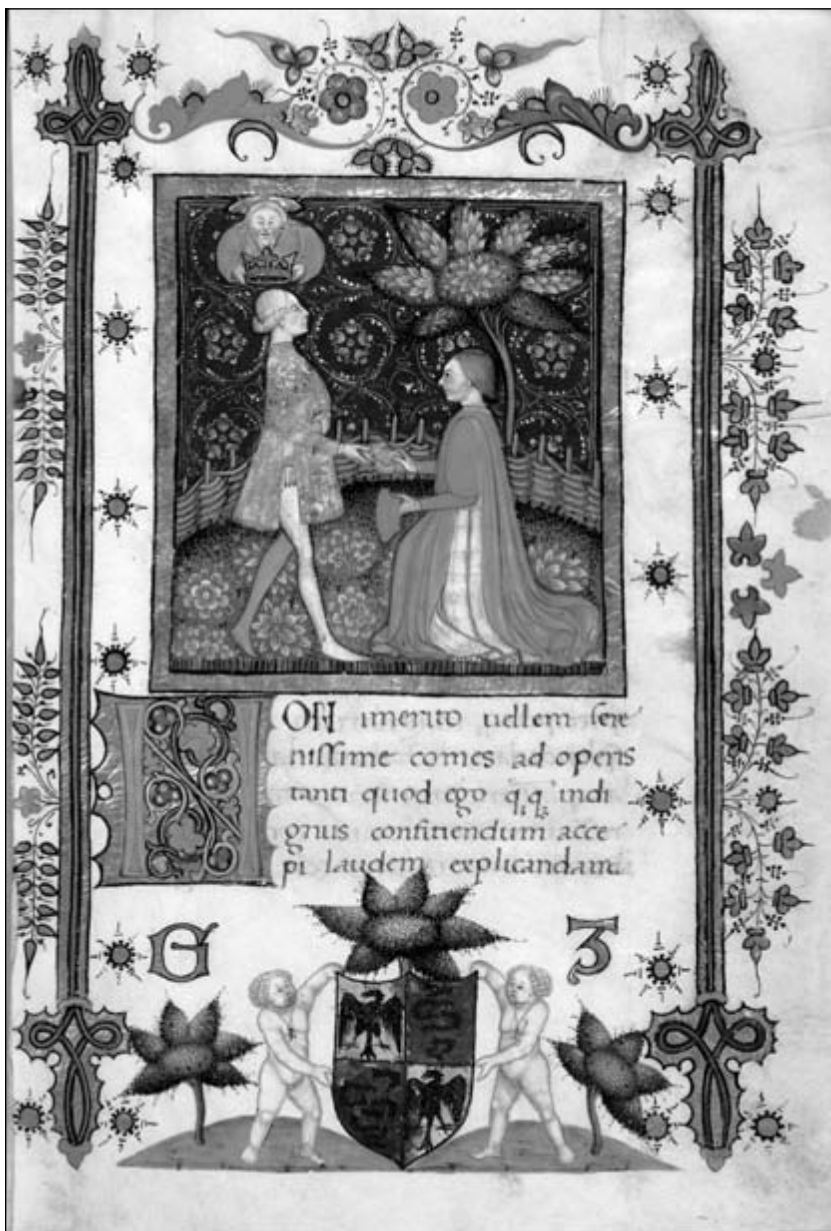 NON imerito uellem sere
nissime comes ad operis
tanti quod ego q̃q̃ indi
gnus confitiendum acce
pi laudem explicandam
G Z